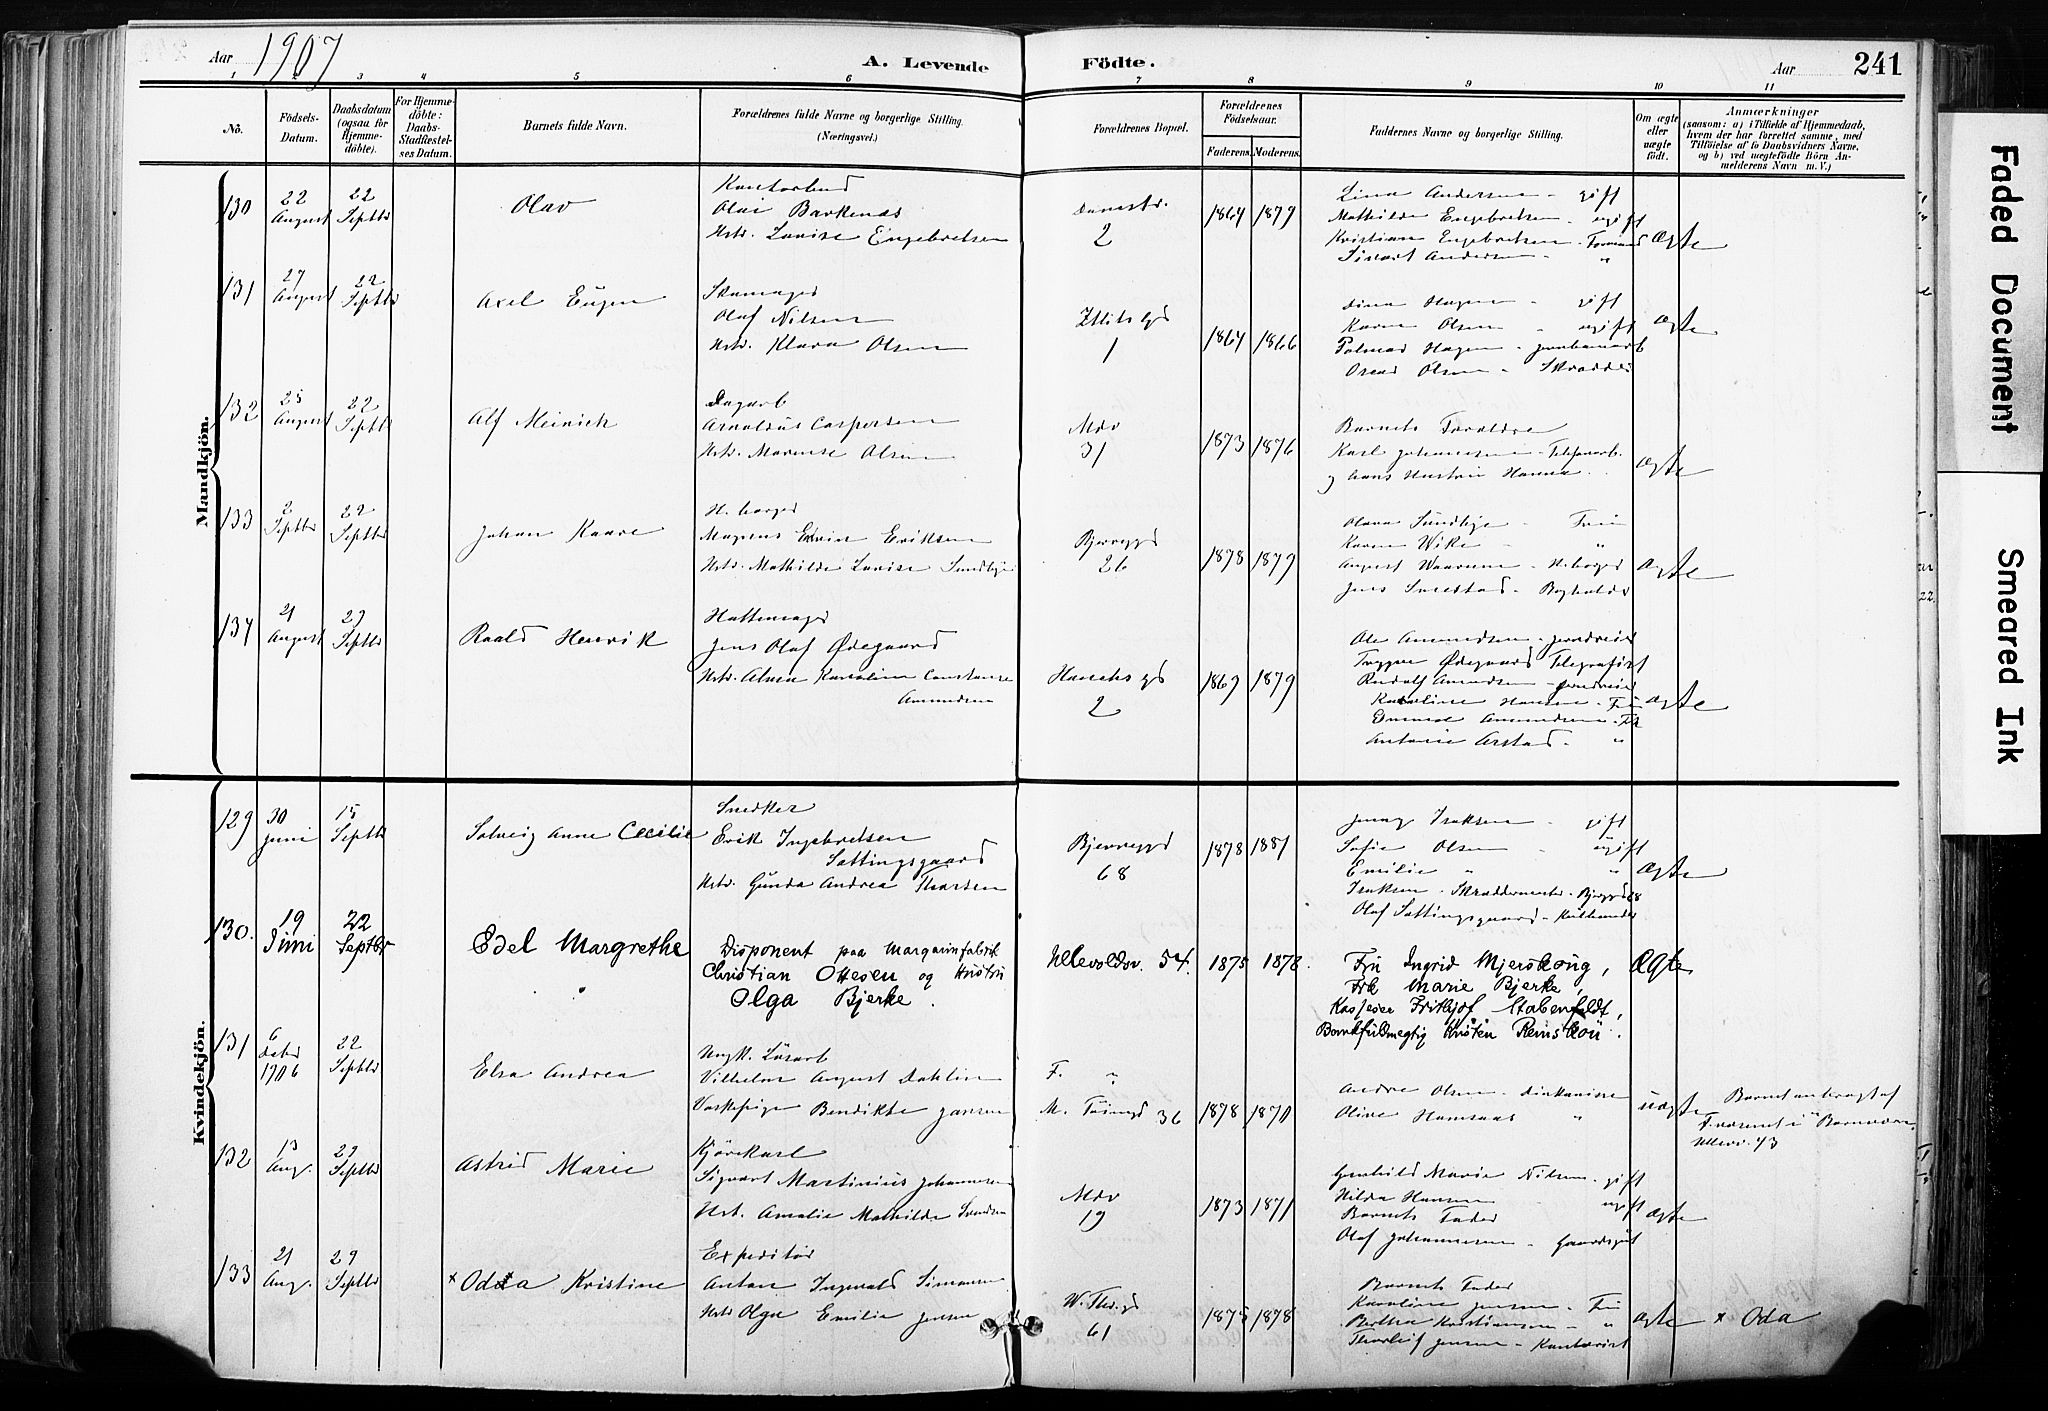 Aar 1907
A. Levende Födte.
Aar 241
1 2 3 4 5 6 7 8 9 10 11
No.
Födsels-Datum.
Daabsdatum (ogsaa for Hjemmedöbte).
For Hjemmedöbte: Daabs-Stadfæstelses Datum.
Barnets fulde Navn.
Forældrenes fulde Navne og borgerlige Stilling.
(Næringsvei.)
Forældrenes Bopæl.
Forældrenes Födselsaar.
Faderens. Moderens.
Faddernes Navne og borgerlige Stilling.
Om ægte eller uægte födt.
Anmærkninger
(saasom: a) i Tilfælde af Hjemmedaab, hvem der har forrettet samme, med Tilföielse af to Daabsvidners Navne, og b) ved uægtefödte Börn Anmelderens Navn m.V.)
Mandkjön.
130 22 August 22 Septbr Olav
Kontorbud
Olai Barkenæs
Hstr. Lovise Engebretsen
2 1864 1879
Lina Andersen - gift
Mathilde Engebretsen - ugift
Kristian Engebretsen - Formand
Sivart Andersen - "
Ægte
131 27 August 22 Septbr Axel Eugen
Skomager
Olaf Nilsen
Hstr. Klara Olsen
1 1864 1866
Lina Hagen - gift
Karen Olsen - ugift
Hagen - jernbanearb
Oscar Olsen - Skrædder
Ægte
132 25 August 22 Septbr Alf Meinich
Dagarb
Arnoldus Caspersen
Hstr. Marense Olsen
31 1873 1876
Barnets Forældre
Karl Johannesen - Telefonarb.
og hans Hustru Hanna
Ægte
133 2 Septbr 22 Septbr Johan Kaare
H. borger
Magnus Edvin Eriksen
Hstr. Mathilde Lovise Sundbye
Bjerregd 26 1878 1879
Olava Sundbye - Frue
Karen Wike - "
August - H. borger
Jens - Bogholder
Ægte
134 21 August 29 Septbr Roald Henrik
Hattemager
Jens Olaf Ødegaard
Hstr. Alma Karoline Constanse Amundsen
2 1869 1879
Ole Amundsen
Trygve Ødegaard Telegrafist
Rudolf Amundsen
Karoline Hansen - Fru
Amundsen - Frk
Antonie Arstad - "
Ægte
Kvindekjön.
129 30 juni 15 Septbr Solveig Anne Cecilie
Snedker
Erik Ingebretsen Sattingsgaard
Hstr. Gunda Andrea Thorsen
Bjerregd 68 1878 1881
Jenny Isaksen - gift
Sofie Olsen - ugift
Emilie " "
Isaksen - Skræddermester - Bjerregd 68
Olof Sattingsgaard
Ægte
130. 19 Juni 22 Septbr Edel Margrethe
Disponent paa Margarinfabrik
Christian Ottesen og Hustru
Olga Bjerke.
Ullevoldsv. 54. 1875 1878.
Fru Ingrid Mjerskoug,
Frk Marie Bjerke,
Kasserer Frithjof Stabenfeldt,
Bankfuldmegtig Kristen Remskou.
Ægte
131 6 1906 22 Septbr Elsa Andrea
Ungk. Lösarb
Vilhelm August Dahlin
Vaskepige Bendikte Jansen
F. "
M. 36 1878 1870
Andrea Olsen - diakonisse
Oline "
uægte
Barnet anbragt af
i "
132 13 Aug. 29 Septbr Astrid Marie
Kjörekarl
Sigvart Martinius Johannesen
Hst. Amalie Mathilde Svendsen
19 1873 1871
Gunhild Marie Nilsen - gift
Hilda Hansen - ugift
Barnets Fader
Olaf Johannesen - Gaardsgut
Ægte
133 21 Aug. 29 Septbr × Odda Kristine
Expeditør
Anton Ingvald Simonsen
Hstr Olga Emilie Jensen
W. Thr.gd 61 1875 1878
Barnets Fader
Karoline Jensen - Fru
Berthe Kristiansen - "
Thorleif Jensen - Kontorist
Ægte
× Oda
Faded Document
Smeared Ink